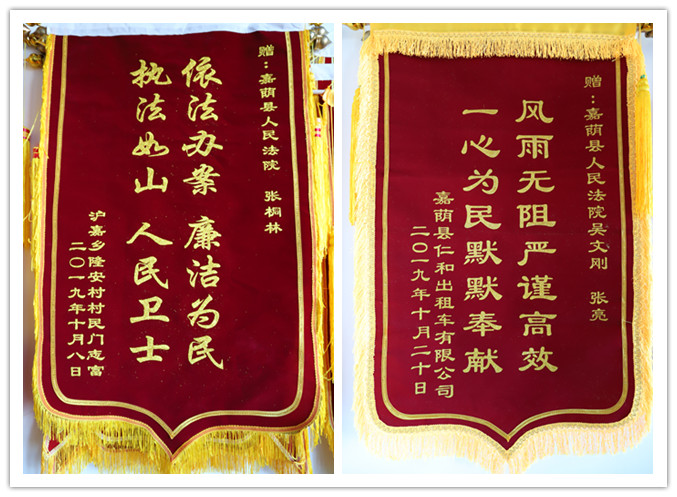 赠：嘉荫县人民法院 张桐林
依法办案 廉洁为民
执法如山 人民卫士
沪嘉乡隆安村村民门志富
二〇一九年十月八日
赠：嘉荫县人民法院吴文刚 张亮
风雨无阻严谨高效
一心为民默默奉献
嘉荫县仁和出租车有限公司
二〇一九年十月二十日